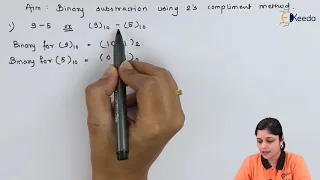 Aim : Binary substraction using 2's compliment method.
1) 9 - 5 ex (9)10 - (5)10
Binary for (9)10 = (1 1)2
Binary for (5)10 = (0 )2
Ekeeda